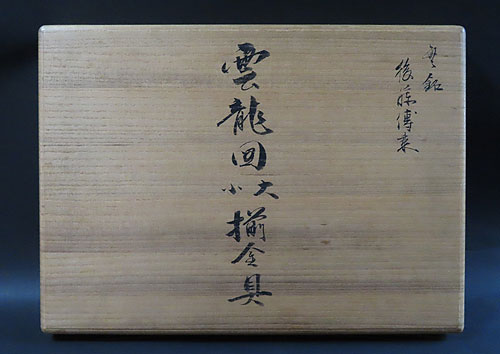 無銘
後藤傳来
雲龍図大小揃金具